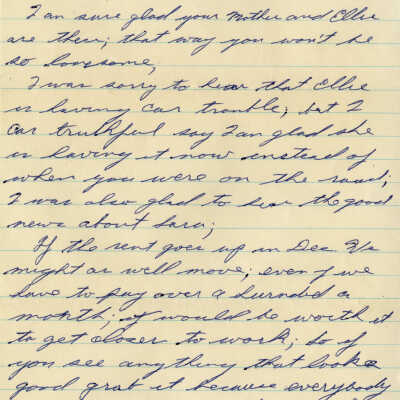 I am sure glad your Mother and Ellie
are there; that way you won't be
so lonesome,
I was sorry to hear that Ellie
is having car trouble; but I
can truthful say I an glad she
is having it now instead of
when you were on the road;
I was also glad to hear the good
news about Sara;
If the rent goes up in Dec We
might as well move; even if we
have to pay over a hundred a
month; it would be worth it
to get closer to work; So if
you see anything that looks
good grab it because everybody